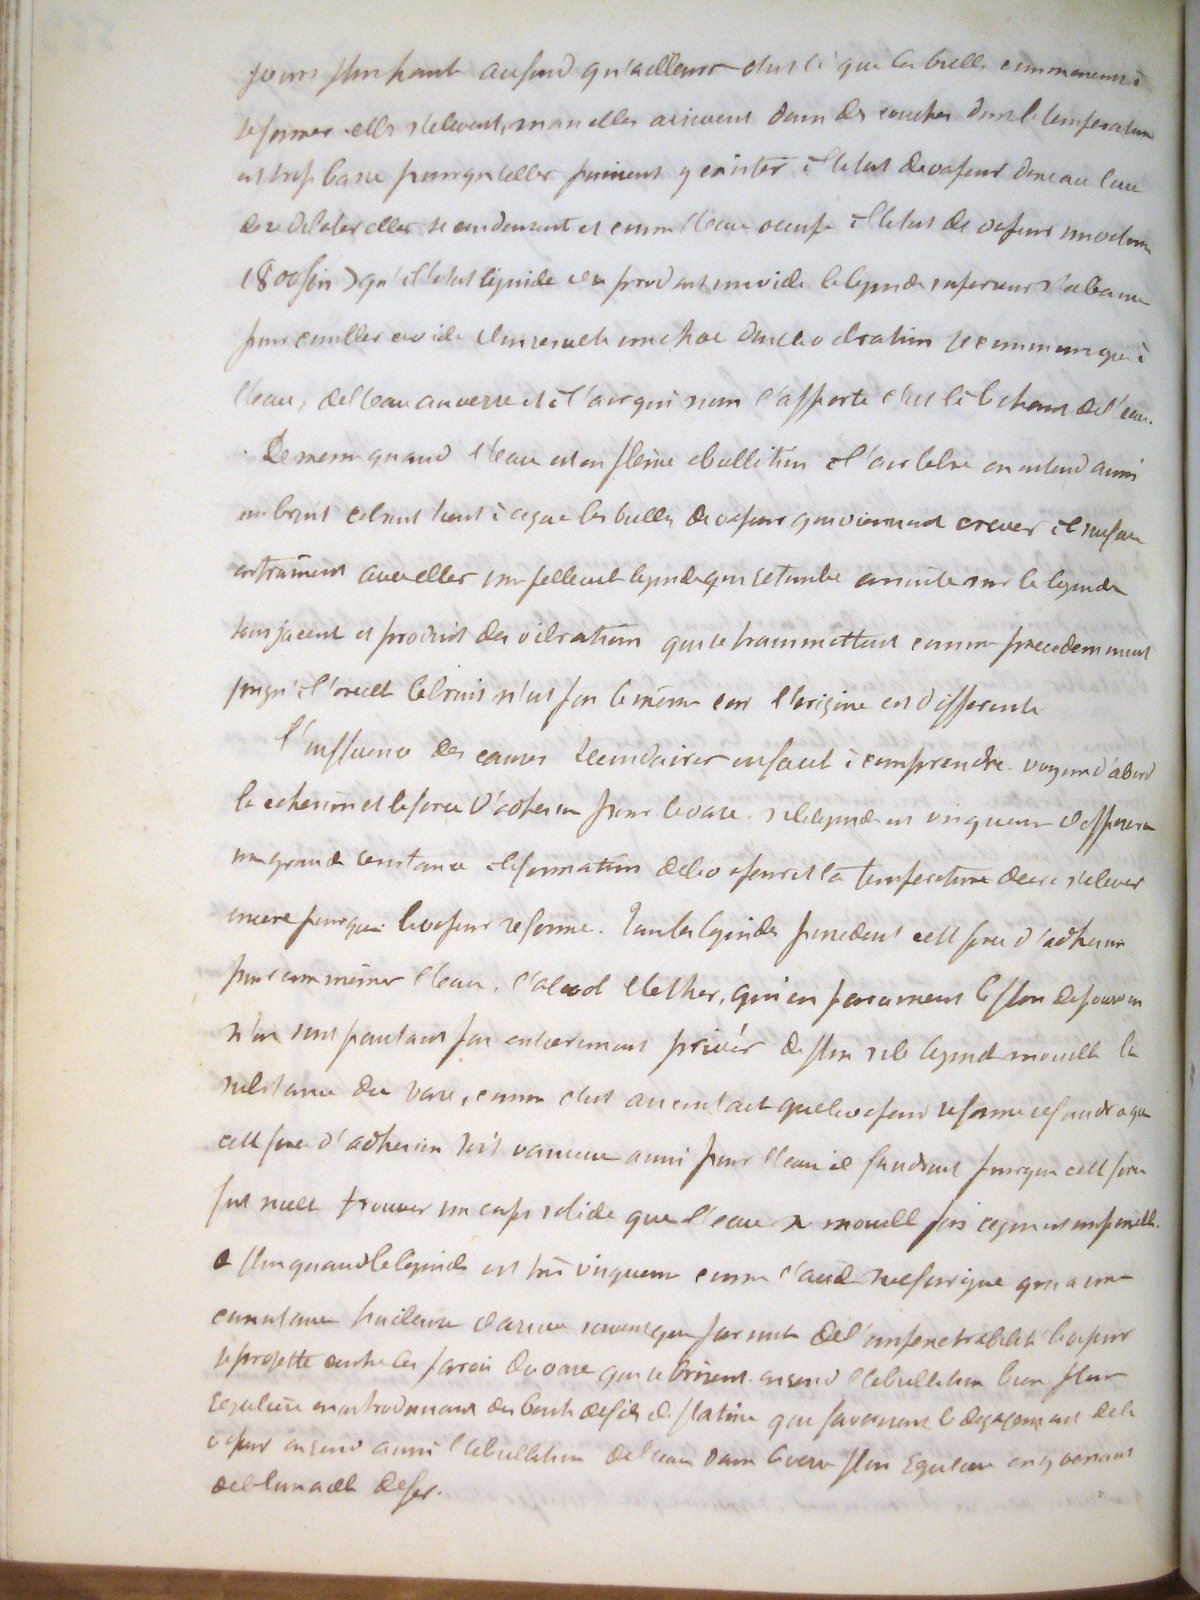 jours plus haute au fond qu'ailleurs c'est là que les bulles commencent à
se former elles s'elevent, mais elles arrivent dans des couches dont la temperature
est trop basse pour qu'elles puissent y exister à l'etat de vapeur donc au lieu
de se dilater elles se condensent et comme l'eau occupe à l'etat de vapeur un volume
1800 fois > qu'à l'etat liquide il se produit un vide le liquide superieur s'abaisse
pour combler ce vide il en resulte un choc dont la vibration se communique à
l'eau, de l'eau au verre et à l'air qui nous l'apporte c'est là le chant de l'eau.
De meme quand l'eau est en pleine ebullition à l'air libre on entend aussi
un bruit cela tient à ce que les bulles de vapeur qui viennent crever à la surface
entrainent avec elles une pellicule liquide qui retombe ensuite sur le liquide
sous jacent et produit des vibrations qui se transmettent comme precedemment
jusqu'à l'oreille le bruit n'est pas le même car l'origine est differente
L'influence des causes secondaires est facile à comprendre. voyons d'abord
la cohesion et la force d'adhesion pour le vase. si le liquide est visqueux il opposera
une grande resistance à la formation de la vapeur et la temperature devra s'elever
encore pour que la vapeur se forme. Tous les liquides possedent cette force d'adhesion
pour eux mêmes l'eau, l'alcool l'ether, qui en paraissent le plus depourvus
n'en sont pourtant pas entierement privés de plus si le liquide mouille la
substance du vase, comme c'est au contact que la vapeur se forme il faudra que
cette force d'adhesion soit vaincue aussi pour l'eau il faudrait pour que cette force
fut nulle trouver un corps solide que l'eau ne mouille pas ce qui est impossible.
De plus quand le liquide est très visqueux comme l'acide sulfurique qui a une
consistance huileuse il arrive souvent que par suite de l'impenetrabilité la vapeur
se projette contre les parois du vase qui se brisent. on rend l'ebullition bien plus
reguliere en introduisant des bouts de fils de platine qui favorisent le degagement de la
vapeur on rend aussi l'ebullition de l'eau dans le verre plus reguliere en y versant
de la limaille de fer.